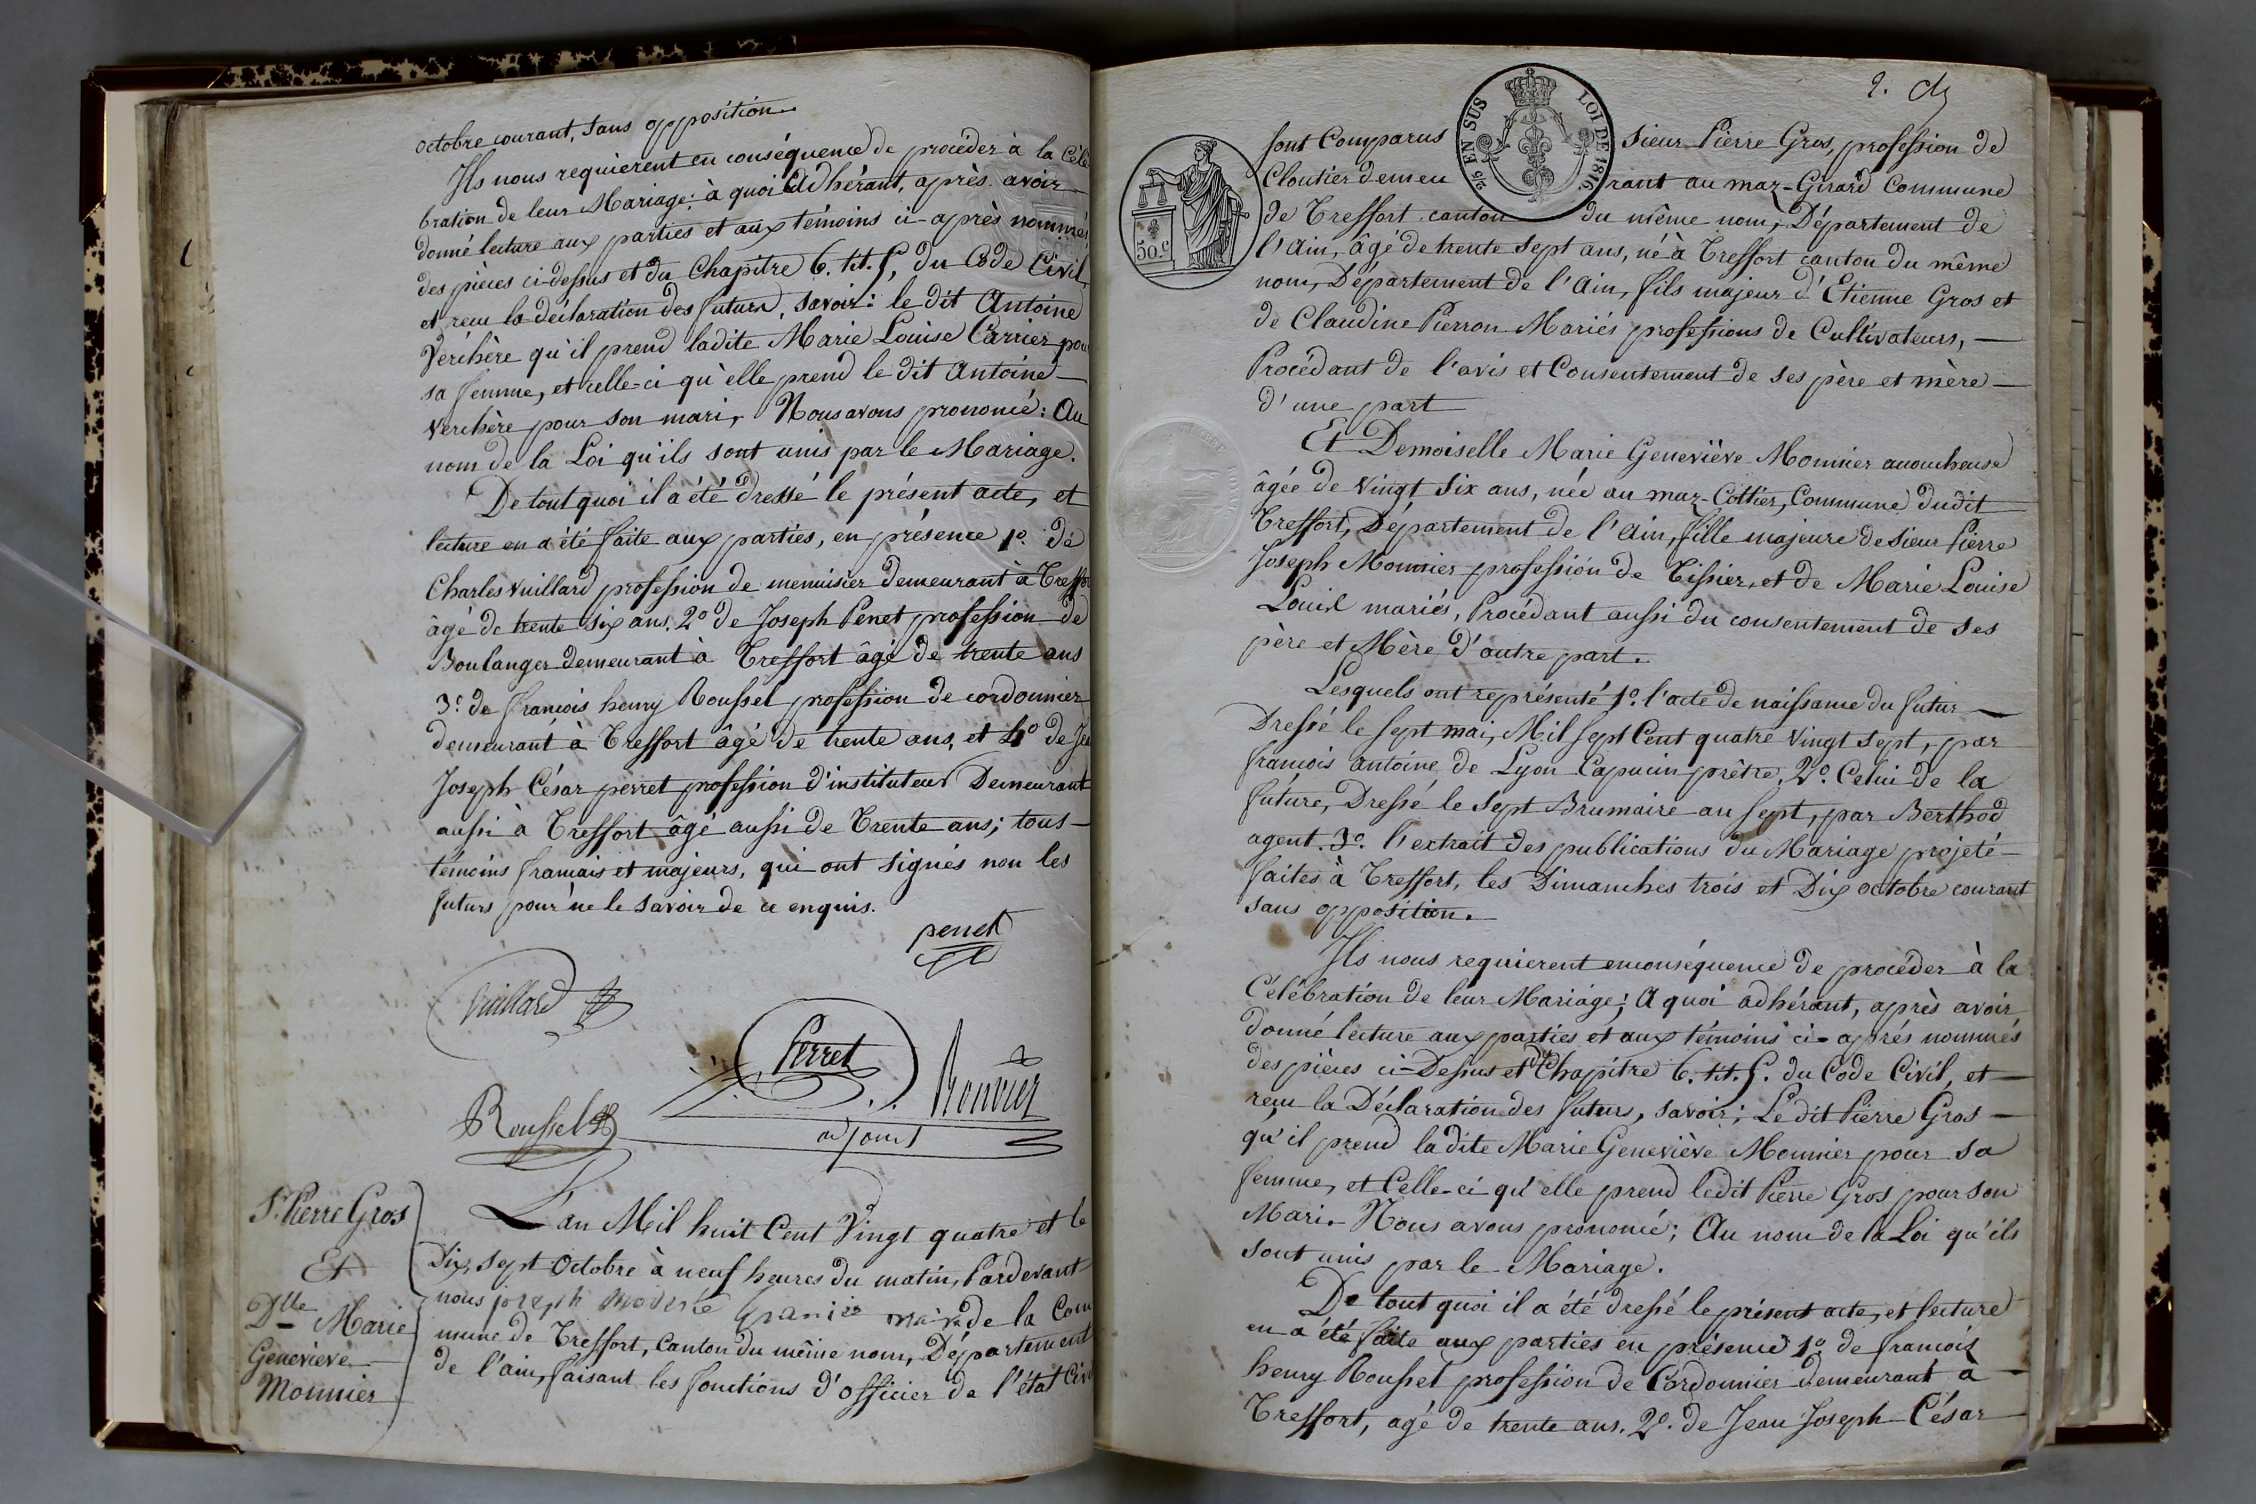 octobre courant, sans opposition
Ils nous requièrent en conséquence de procéder à la Célé
bration de leur Mariage; à quoi adhérant, après avoir
donné lecture aux parties et aux témoins ci-après nommés
des pièces ci-dessus et du Chapitre 6. tit. 5, du Code Civil,
et reçu la déclaration des futurs, savoir: le dit Antoine
Verchère qu'il prend ladite Marie Louise Carrier pour
sa femme, et celle-ci qu'elle prend le dit Antoine
Verchère pour son mari, Nous avons prononcé: Au
nom de la Loi qu'ils sont unis par le Mariage.
De tout quoi il a été dressé le présent acte, et
lecture en a été faite aux parties, en présence 1o. de
Charles Vuillard profession de menuisier demeurant à Treffor
âgé de trente six ans. 2o de Joseph Penet profession de
Boulanger demeurant à Treffort âgé de trente ans
3o. de françois henry Roussel profession de cordonnier
demeurant à Treffort âgé de trente ans, et 4o de Jea
Joseph César perret profession d'instituteur Demeurant
aussi à Treffort âgé aussi de Trente ans; tous
témoins français et majeurs, qui ont signés non les
futurs pour ne le savoir de ce enquis.
penet
Vuillard
Perret
Roussel
adjoint
St. Pierre Gros
Et
Dlle Marie
Geneviève
Monnier
L'an Mil huit Cent Vingt quatre et le
Dix, sept Octobre à neuf heures du matin, Pardevant
nous joseph granier maire de la Com
mune de Treffort, Canton du même nom, Département
de l'ain, faisant les fonctions d'officier de l'état Civi
2.
2/5 EN SUS LOI DE 1816.
50.c
sont Comparus sieur Pierre Gros, profession de
Cloutier demeu rant au maz-Girard Commune
de Treffort canton du même nom, Département de
l'Ain, âgé de trente sept ans, né à Treffort canton du même
nom, Département de l'Ain, fils majeur d'Etienne Gros et
de Claudine Pierron Mariés professions de Cultivateurs,
Procédant de l'avis et Consentement de ses père et mère
d'une part
Et Demoiselle Marie Geneviève Monnier accoucheuse
âgée de Vingt Six ans, née au maz-Cottier, Commune dudit
Treffort, Département de l'Ain, fille majeure de sieur Pierre
Joseph Monnier profession de Tissier, et de Marie Louise
mariés, Procédant aussi du consentement de ses
père et Mère D'autre part.
Lesquels ont représenté 1o. l'acte de naissance du futur
Dressé le sept mai, Mil sept Cent quatre Vingt sept, par
françois antoine de Lyon Capucin prêtre. 2o. Celui de la
future, Dressé le Sept Brumaire an sept, par Berthod
agent. 3o. l'extrait des publications du Mariage projeté
faites à Treffort, les Dimanches trois et Dix octobre courant
sans opposition.
Ils nous requièrent enconséquence de procéder à la
Célébration de leur Mariage; A quoi adhérant, après avoir
donné lecture aux parties et aux témoins ci-après nommés
des pièces ci-Dessus et du Chapitre 6. tit. 5. du Code Civil, et
reçu la Déclaration des futurs, savoir; Le dit Pierre Gros
qu'il prend la dite Marie Geneviève Monnier pour sa
femme, et Celle-ci qu'elle prend ledit Pierre Gros pour son
Mari. Nous avons prononcé; Au nom de la Loi qu'ils
sont unis par le Mariage.
De tout quoi il a été dressé le présent acte, et lecture
en a été faite aux parties en présence 1o. de françois
henry Roussel profession de Cordonnier demeurant à
Treffort, agé de trente ans. 2o. de Jean Joseph César